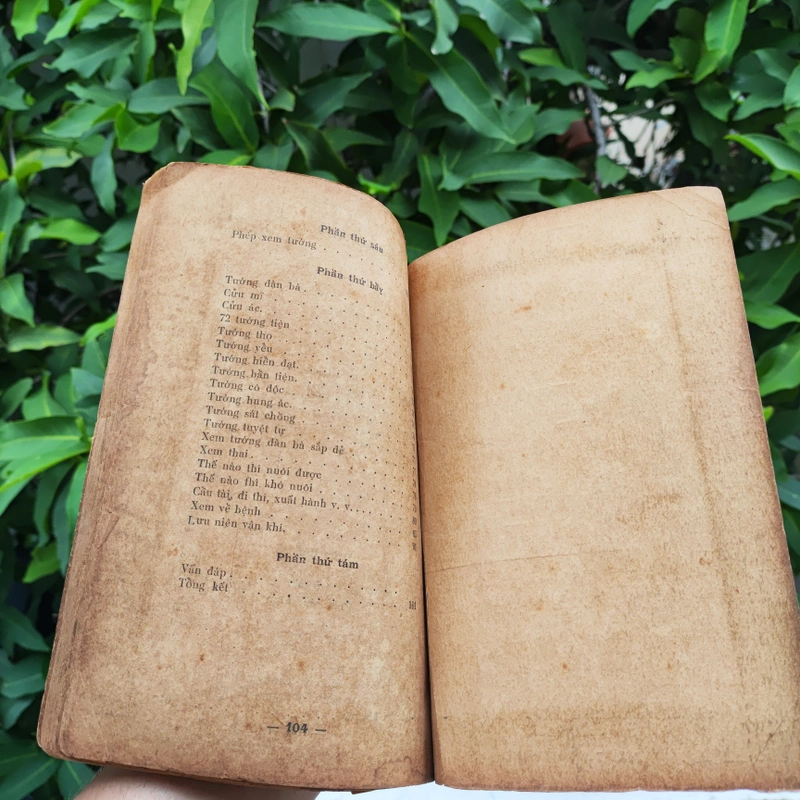 Phần thứ sáu
Phép xem tướng . . . .
Phần thứ bảy
Tướng đàn bà . . . . . . . . . .
Cửu mĩ . . . . . . . . . .
Cửu ác. . . . . . . . . .
72 tướng tiện . . . . . . . . . .
Tướng thọ . . . . . . . . . .
Tướng yểu . . . . . . . . . .
Tướng hiển đạt. . . . . . . . . .
Tướng bần tiện. . . . . . . . . .
Tướng cô độc . . . . . . . . . .
Tướng hung ác. . . . . . . . . .
Tướng sát chồng . . . . . . . . . .
Tướng tuyệt tự . . . . . . . . . .
Xem tướng đàn bà sắp đẻ . . . . .
Xem thai . . . . . . . . . .
Thế nào thì nuôi được . . . . . . .
Thế nào thì khó nuôi . . . . . . .
Cầu tài, đi thi, xuất hành v. v. . . . .
Xem về bệnh . . . . . . . . . .
Lưu niên vận khí. . . . . . . . . .
Phần thứ tám
Vấn đáp . . . . . . . . . .
Tổng kết . . . . . . . . . .
— 104 —